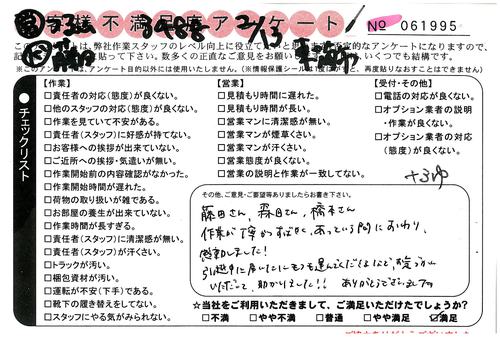 お客様不満足度アンケート
2/13
No 061995
このアンケートは、弊社作業スタッフのレベル向上に役立て
否定的なアンケートになりますので、
貼って下さい。数多くのご意見をお願い
いくつでも結構です。
※このアンケートは、アンケート目的以外には使用いたしません。(※情報保護シール
再度貼りなおすことはできません)
チェックリスト
【作業】
□責任者の対応(態度)が良くない。
□他のスタッフの対応(態度)が良くない。
□作業を見ていて不安がある。
□責任者(スタッフ)に好感が持てない。
□お客様への挨拶が出来ていない。
□ご近所への挨拶・気遣いが無い。
□作業開始前の内容確認がなかった。
□作業開始時間が遅れた。
□荷物の取り扱いが雑である。
□お部屋の養生が出来ていない。
□作業時間が長すぎる。
□責任者(スタッフ)に清潔感が無い。
□責任者(スタッフ)が汗くさい。
□トラックが汚い。
□梱包資材が汚い。
□運転が不安(下手)である。
□靴下の履き替えをしてない。
□スタッフにやる気がみられない。
【営業】
□見積もり時間に遅れた。
□見積もり時間が長い。
□営業マンに清潔感が無い。
□営業マンが煙草くさい。
□営業マンが汗くさい。
□営業態度が良くない。
□営業の説明と作業が一致してない。
【受付・その他】
□電話の対応が良くない。
□オプション業者の説明
・作業が良くない。
□オプション業者の対応
(態度)が良くない。
その他、ご意見・ご要望等ありましたらお書き下さい。
藤田さん、森田さん、橋本さん
作業が丁寧かつすばやく、あっという間におわり、
感動しました!
助かりました!! ありがとうございました
☆当社をご利用いただきまして、ご満足いただけたでしょうか?
□不満 □やや不満 □普通 □やや満足 ☑満足